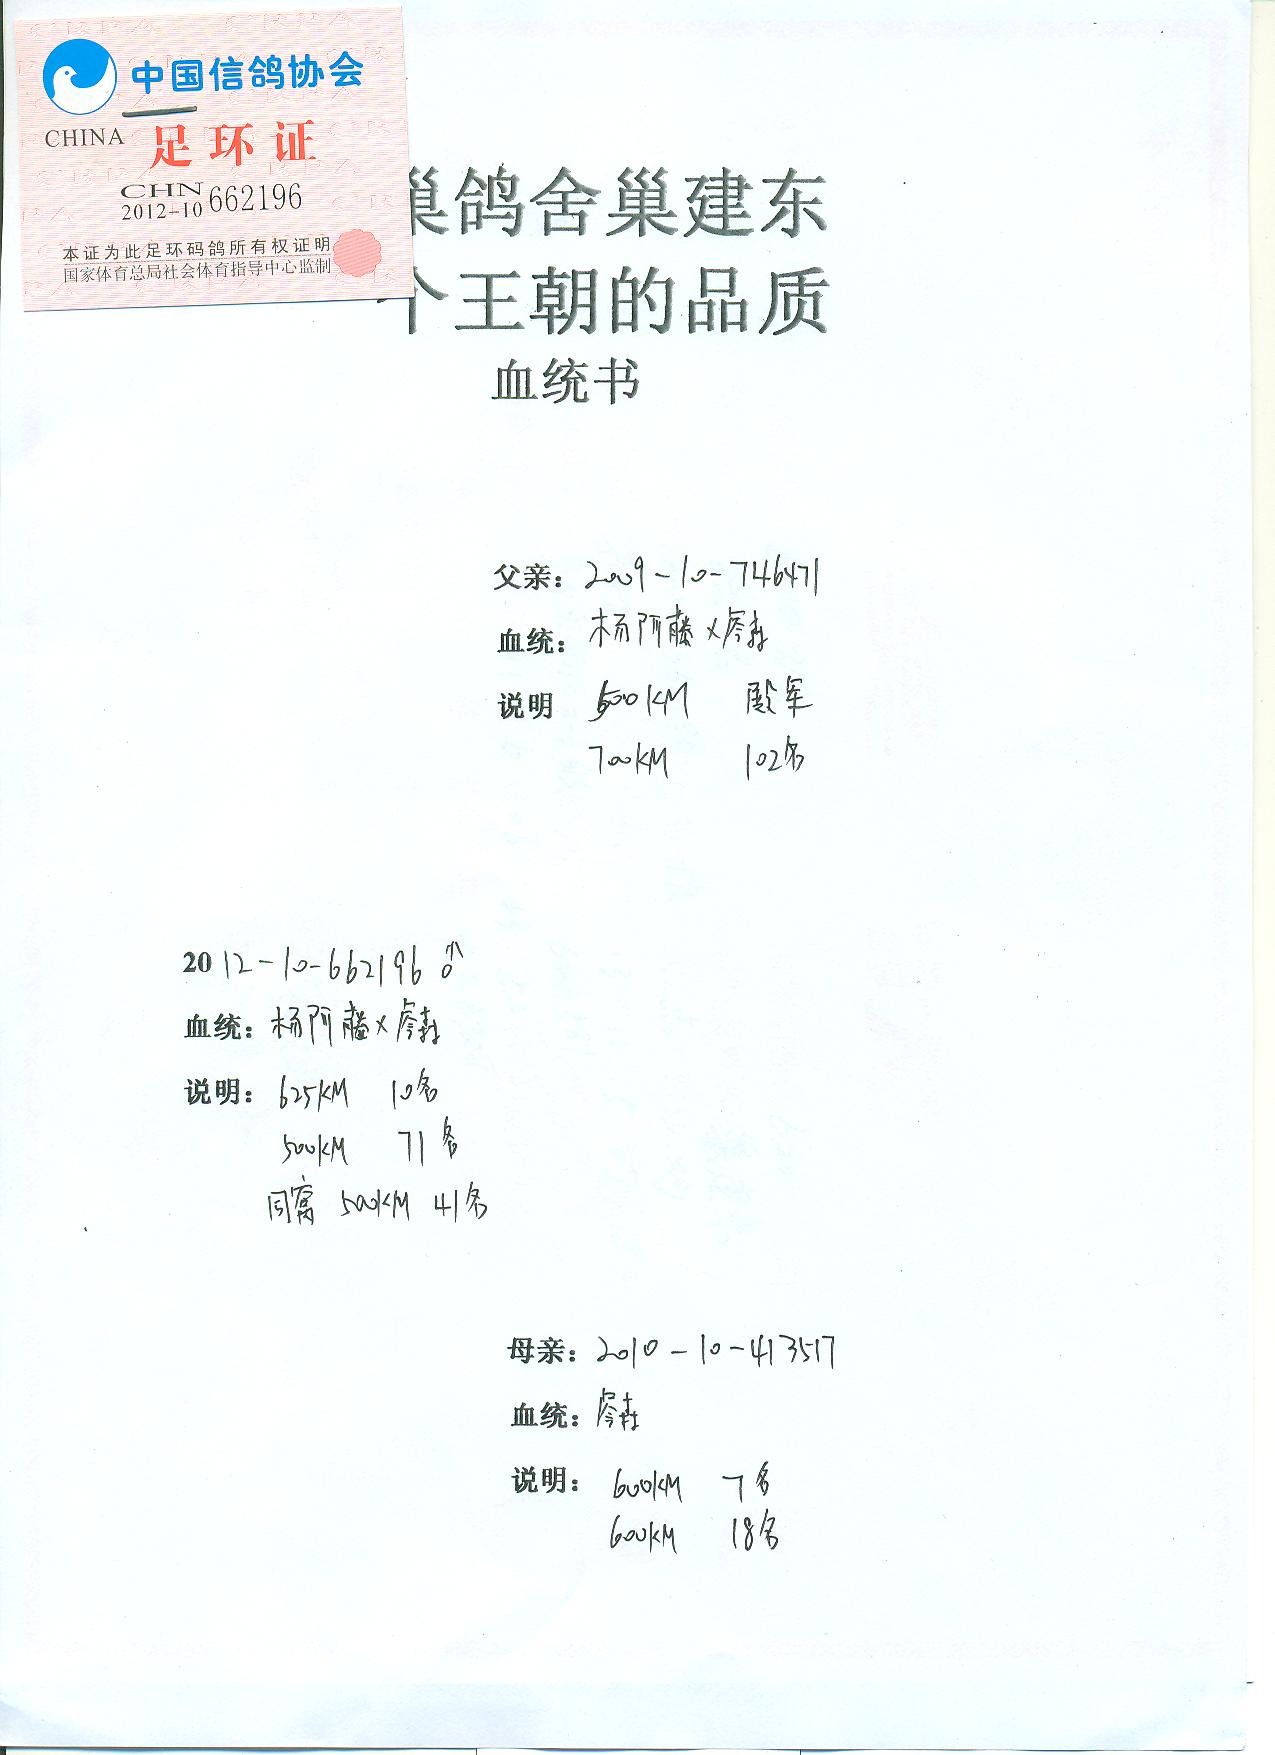 中国信鸽协会
CHINA 足环证
CHN
2012-10 662196
本证为此足环码鸽所有权证明
国家体育总局社会体育指导中心监制
巢鸽舍巢建东
个王朝的品质
血统书
父亲：2009-10-746471
血统：杨阿藤×詹森
说明 500KM 殿军
700KM 102名
2012-10-662196 ♂
血统：杨阿藤×詹森
说明：625KM 10名
500KM 71名
同窝 500KM 41名
母亲：2010-10-413517
血统：詹森
说明：600KM 7名
600KM 18名